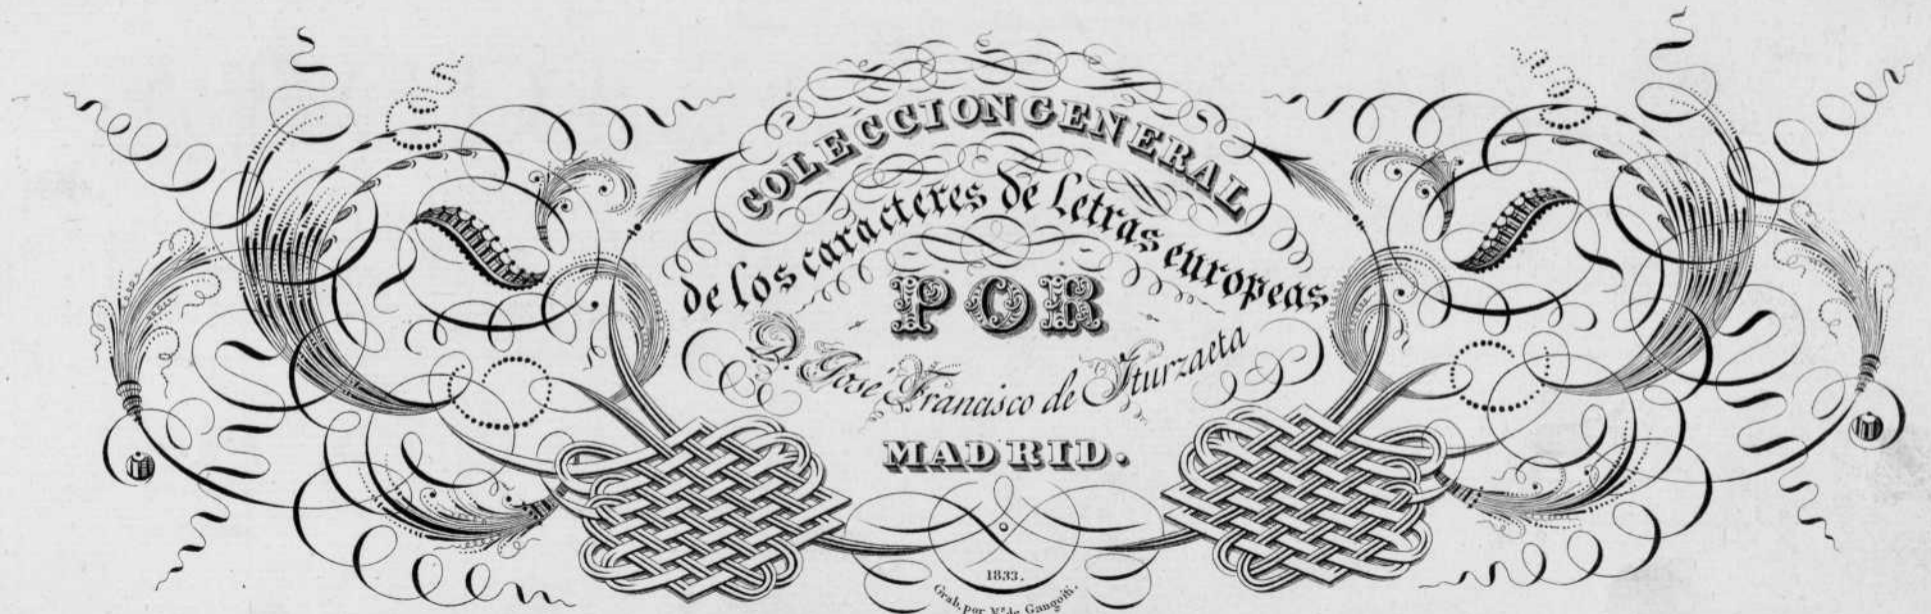 COLECCION GENERAL
de los caracteres de Letras europeas
POR
D. José Francisco de Iturzaeta
MADRID.
1833.
Grab. por Ms. de Gangoiti.